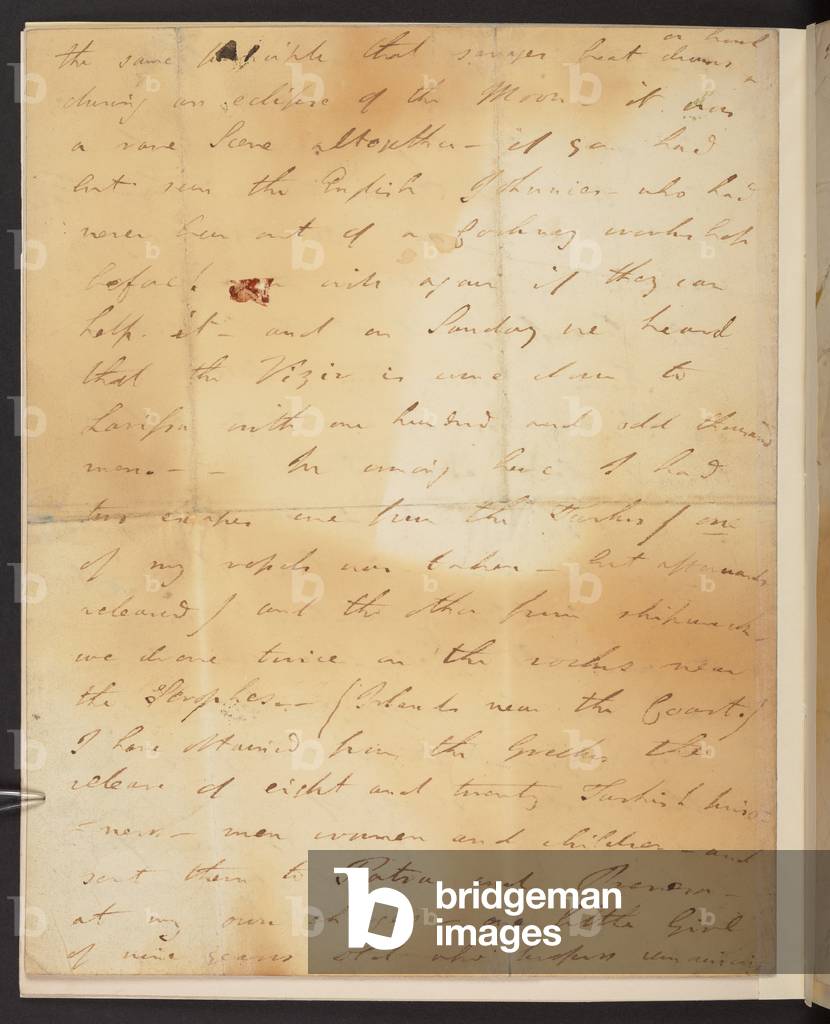 or howl
the same principle that savages beat drums
during an eclipse of the Moon – it was
a rare Scene altogether – if you had
but seen the English Johnnies – who had
never been out of a Cockney workshop
before! or will again if they can
help it – and on Sunday we heard
that the Vizir is come down to
Larissa with one hundred and odd thousand
men. – – In coming here I had
two escapes one from the Turks / one
of my vessels was taken – but afterwards
released / and the other from shipwreck –
we drove twice on the rocks near
the Scrophes – (Islands near the Coast.)
I have obtained from the Greeks the
release of eight and twenty Turkish priso-
-ners – men women and children – and
sent them to Patras and Prevesa –
at my own charges – one little Girl
of nine years old who prefers remaining
bridgeman
images